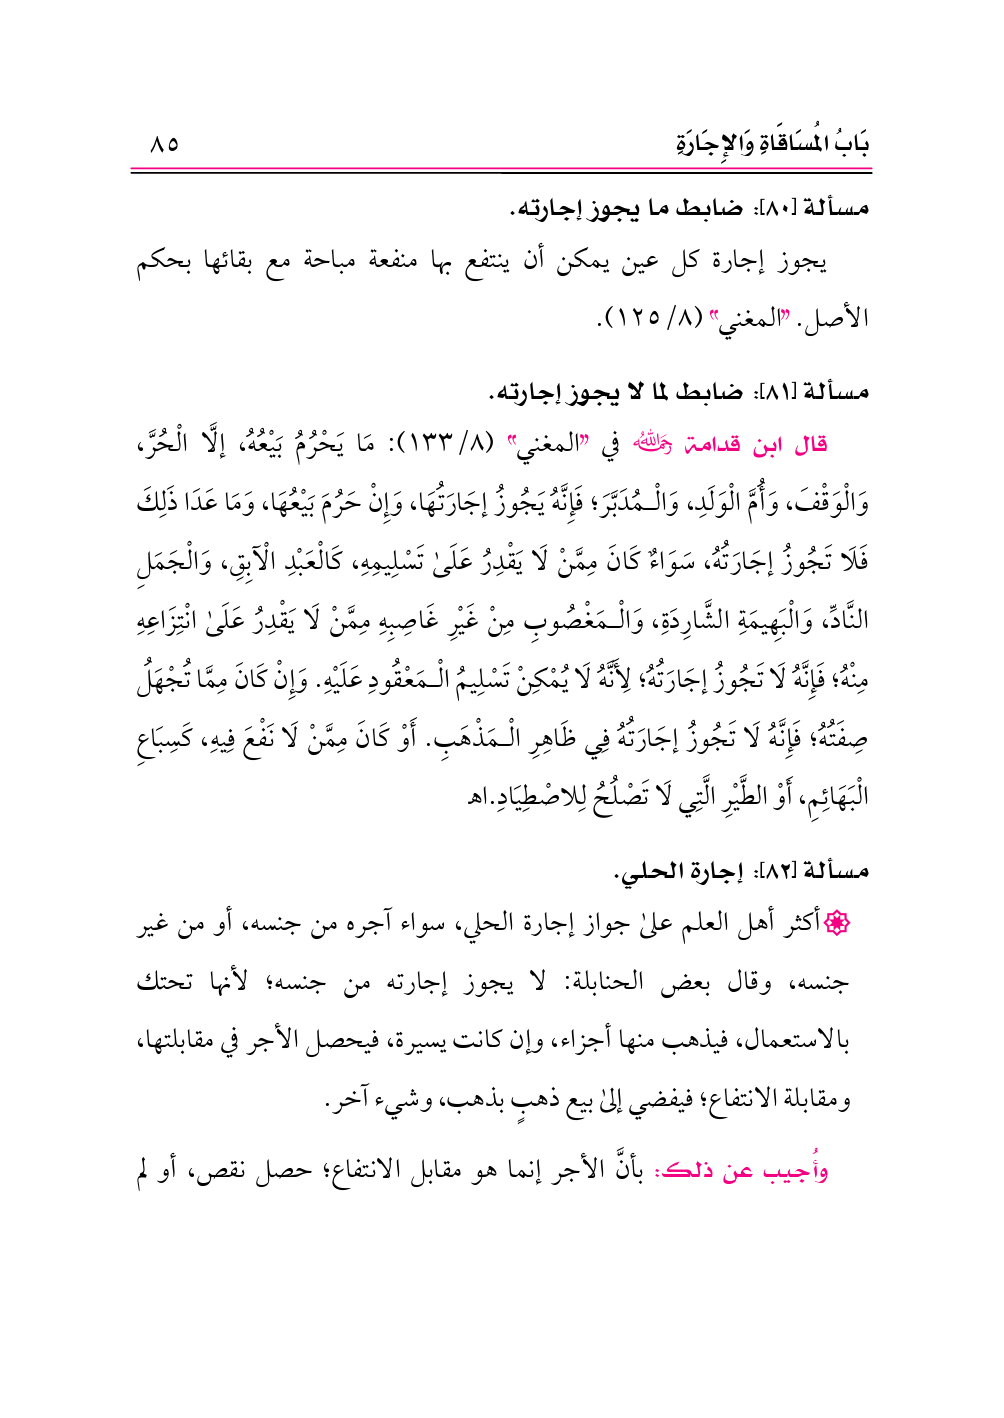 بَابُ الْمُسَاقَاةِ وَالإِجَارَةِ ٨٥
مسألة [٨٠]: ضابط ما يجوز إجارته.
يجوز إجارة كل عين يمكن أن ينتفع بها منفعة مباحة مع بقائها بحكم
الأصل. "المغني" (٨/ ١٢٥).
مسألة [٨١]: ضابط لما لا يجوز إجارته.
قال ابن قدامة رحمه الله في "المغني" (٨/ ١٣٣): مَا يَحْرُمُ بَيْعُهُ، إلَّا الْحُرَّ،
وَالْوَقْفَ، وَأُمَّ الْوَلَدِ، وَالْـمُدَبَّرَ؛ فَإِنَّهُ يَجُوزُ إجَارَتُهَا، وَإِنْ حَرُمَ بَيْعُهَا، وَمَا عَدَا ذَلِكَ
فَلَا تَجُوزُ إجَارَتُهُ، سَوَاءٌ كَانَ مِمَّنْ لَا يَقْدِرُ عَلَىٰ تَسْلِيمِهِ، كَالْعَبْدِ الْآبِقِ، وَالْجَمَلِ
النَّادِّ، وَالْبَهِيمَةِ الشَّارِدَةِ، وَالْـمَغْصُوبِ مِنْ غَيْرِ غَاصِبِهِ مِمَّنْ لَا يَقْدِرُ عَلَىٰ انْتِزَاعِهِ
مِنْهُ؛ فَإِنَّهُ لَا تَجُوزُ إجَارَتُهُ؛ لِأَنَّهُ لَا يُمْكِنْ تَسْلِيمُ الْـمَعْقُودِ عَلَيْهِ. وَإِنْ كَانَ مِمَّا تُجْهَلُ
صِفَتُهُ؛ فَإِنَّهُ لَا تَجُوزُ إجَارَتُهُ فِي ظَاهِرِ الْـمَذْهَبِ. أَوْ كَانَ مِمَّنْ لَا نَفْعَ فِيهِ، كَسِبَاعِ
الْبَهَائِمِ، أَوْ الطَّيْرِ الَّتِي لَا تَصْلُحُ لِلاصْطِيَادِ.اهـ
مسألة [٨٢]: إجارة الحلي.
أكثر أهل العلم علىٰ جواز إجارة الحلي، سواء آجره من جنسه، أو من غير
جنسه، وقال بعض الحنابلة: لا يجوز إجارته من جنسه؛ لأنها تحتك
بالاستعمال، فيذهب منها أجزاء، وإن كانت يسيرة، فيحصل الأجر في مقابلتها،
ومقابلة الانتفاع؛ فيفضي إلىٰ بيع ذهبٍ بذهب، وشيء آخر.
وأُجيب عن ذلك: بأنَّ الأجر إنما هو مقابل الانتفاع؛ حصل نقص، أو لم